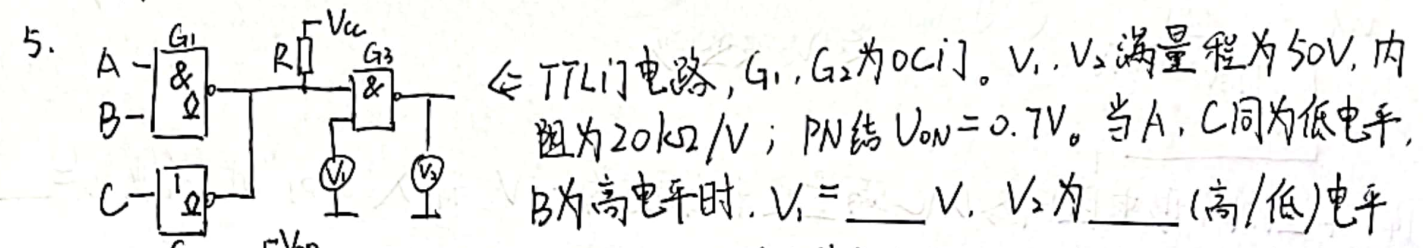 5.
A
B
C
G₁
&
1
R
Vcc
G₃
&
V₁
V₂
← TTL门电路,G₁、G₂为OC门。V₁、V₂满量程为50V,内
阻为20kΩ/V;PN结U_ON=0.7V。当A、C同为低电平,
B为高电平时,V₁=____V,V₂为____(高/低)电平